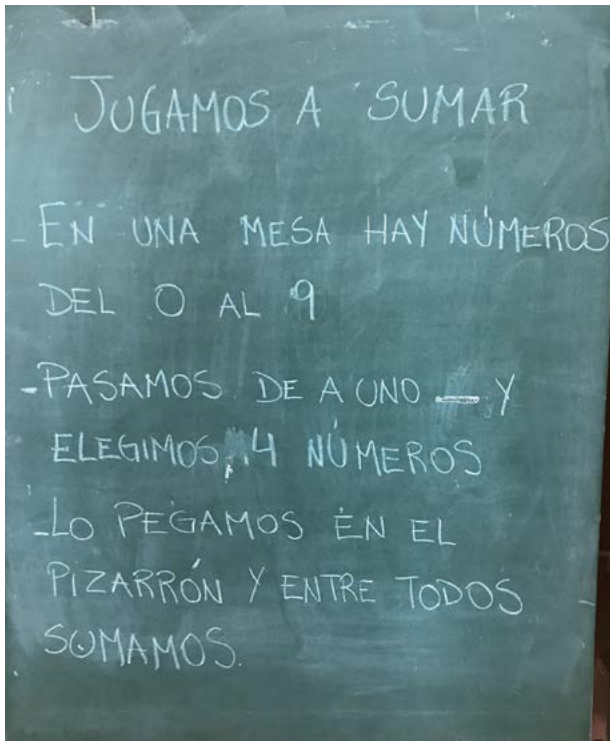 JUGAMOS A SUMAR
- EN UNA MESA HAY NÚMEROS
DEL 0 AL 9
- PASAMOS DE A UNO — Y
ELEGIMOS 4 NÚMEROS
- LO PEGAMOS EN EL
PIZARRÓN Y ENTRE TODOS
SUMAMOS.